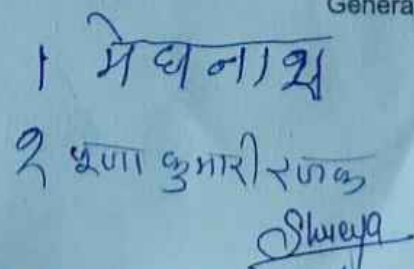 Genera
१ मेघनाथ
२ पूजा कुमारी रजक
Shreya